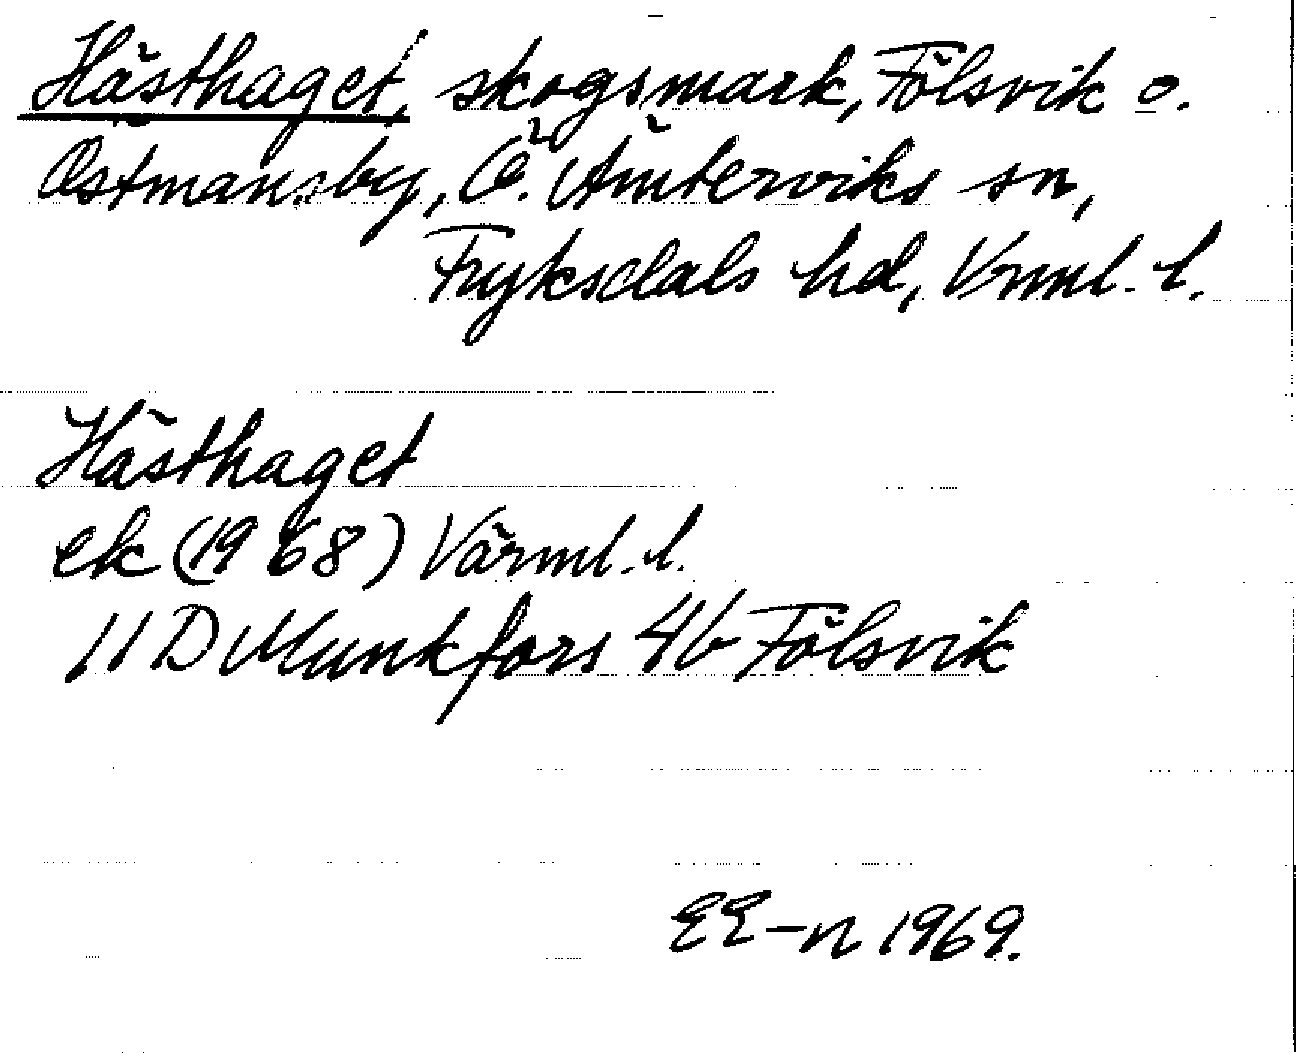 Hästhaget, skogsmark, Fölsvik o.
Östmansby, Ö. Ämterviks sn,
Fryksdals hd, Vrml. l.
Hästhaget
ek (1968) Värml. l.
11 D Munkfors 4b Fölsvik
EE-n 1969.